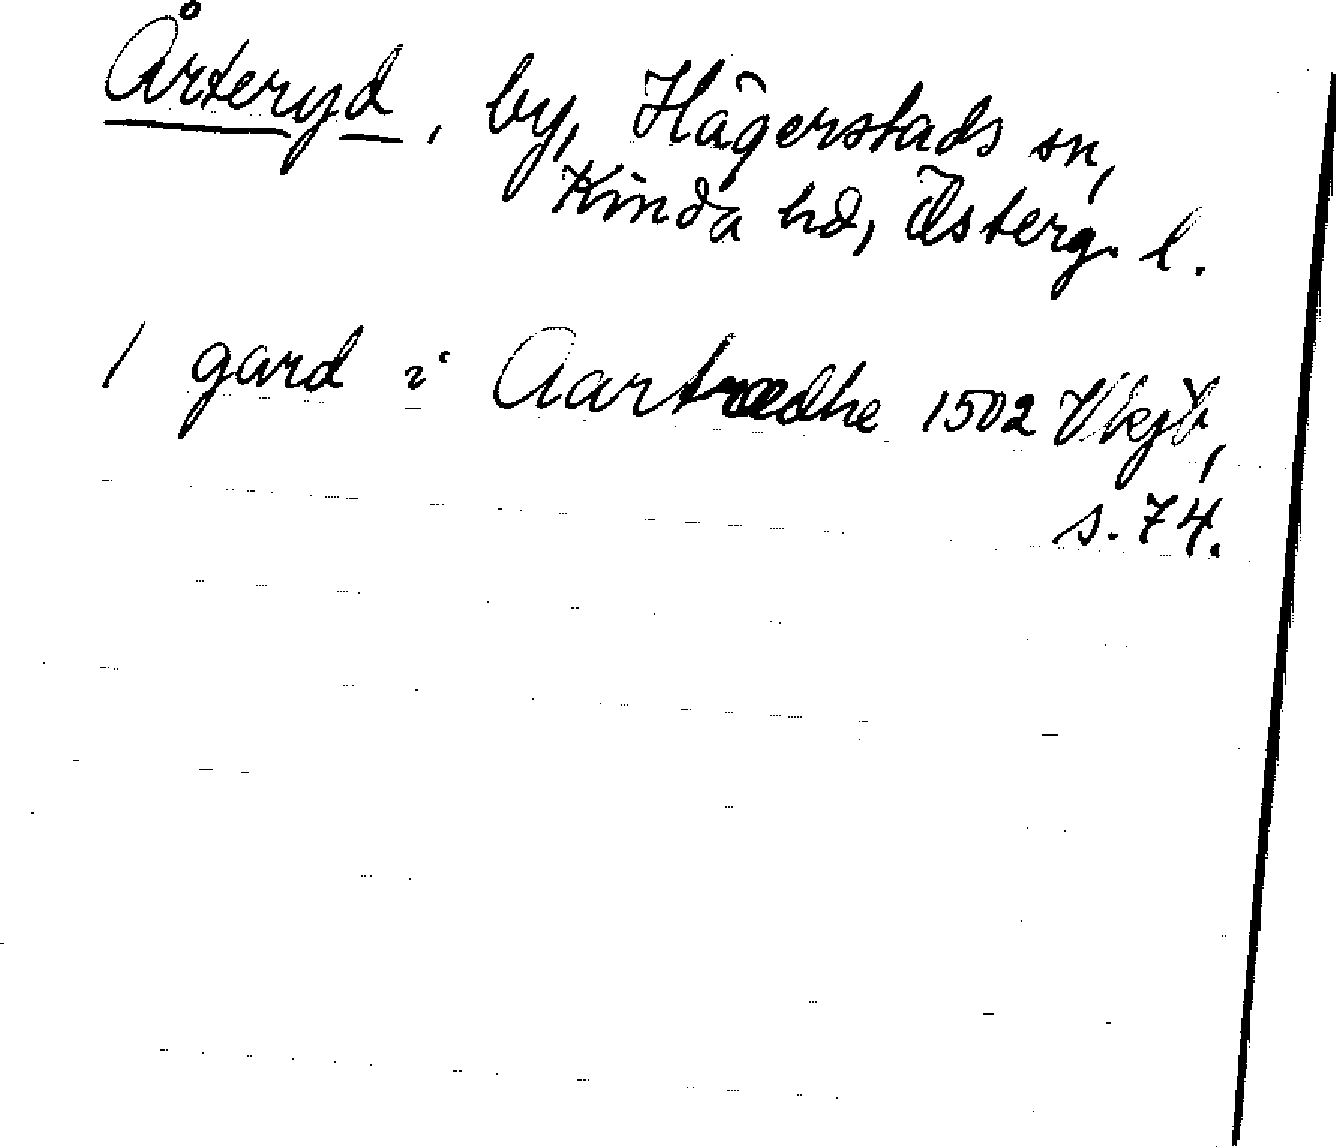 Årteryd, by, Hägerstads sn,
Kinda hd, Österg. l.
1 gard i Aartrædhe 1502 Vkjb,
s. 74.